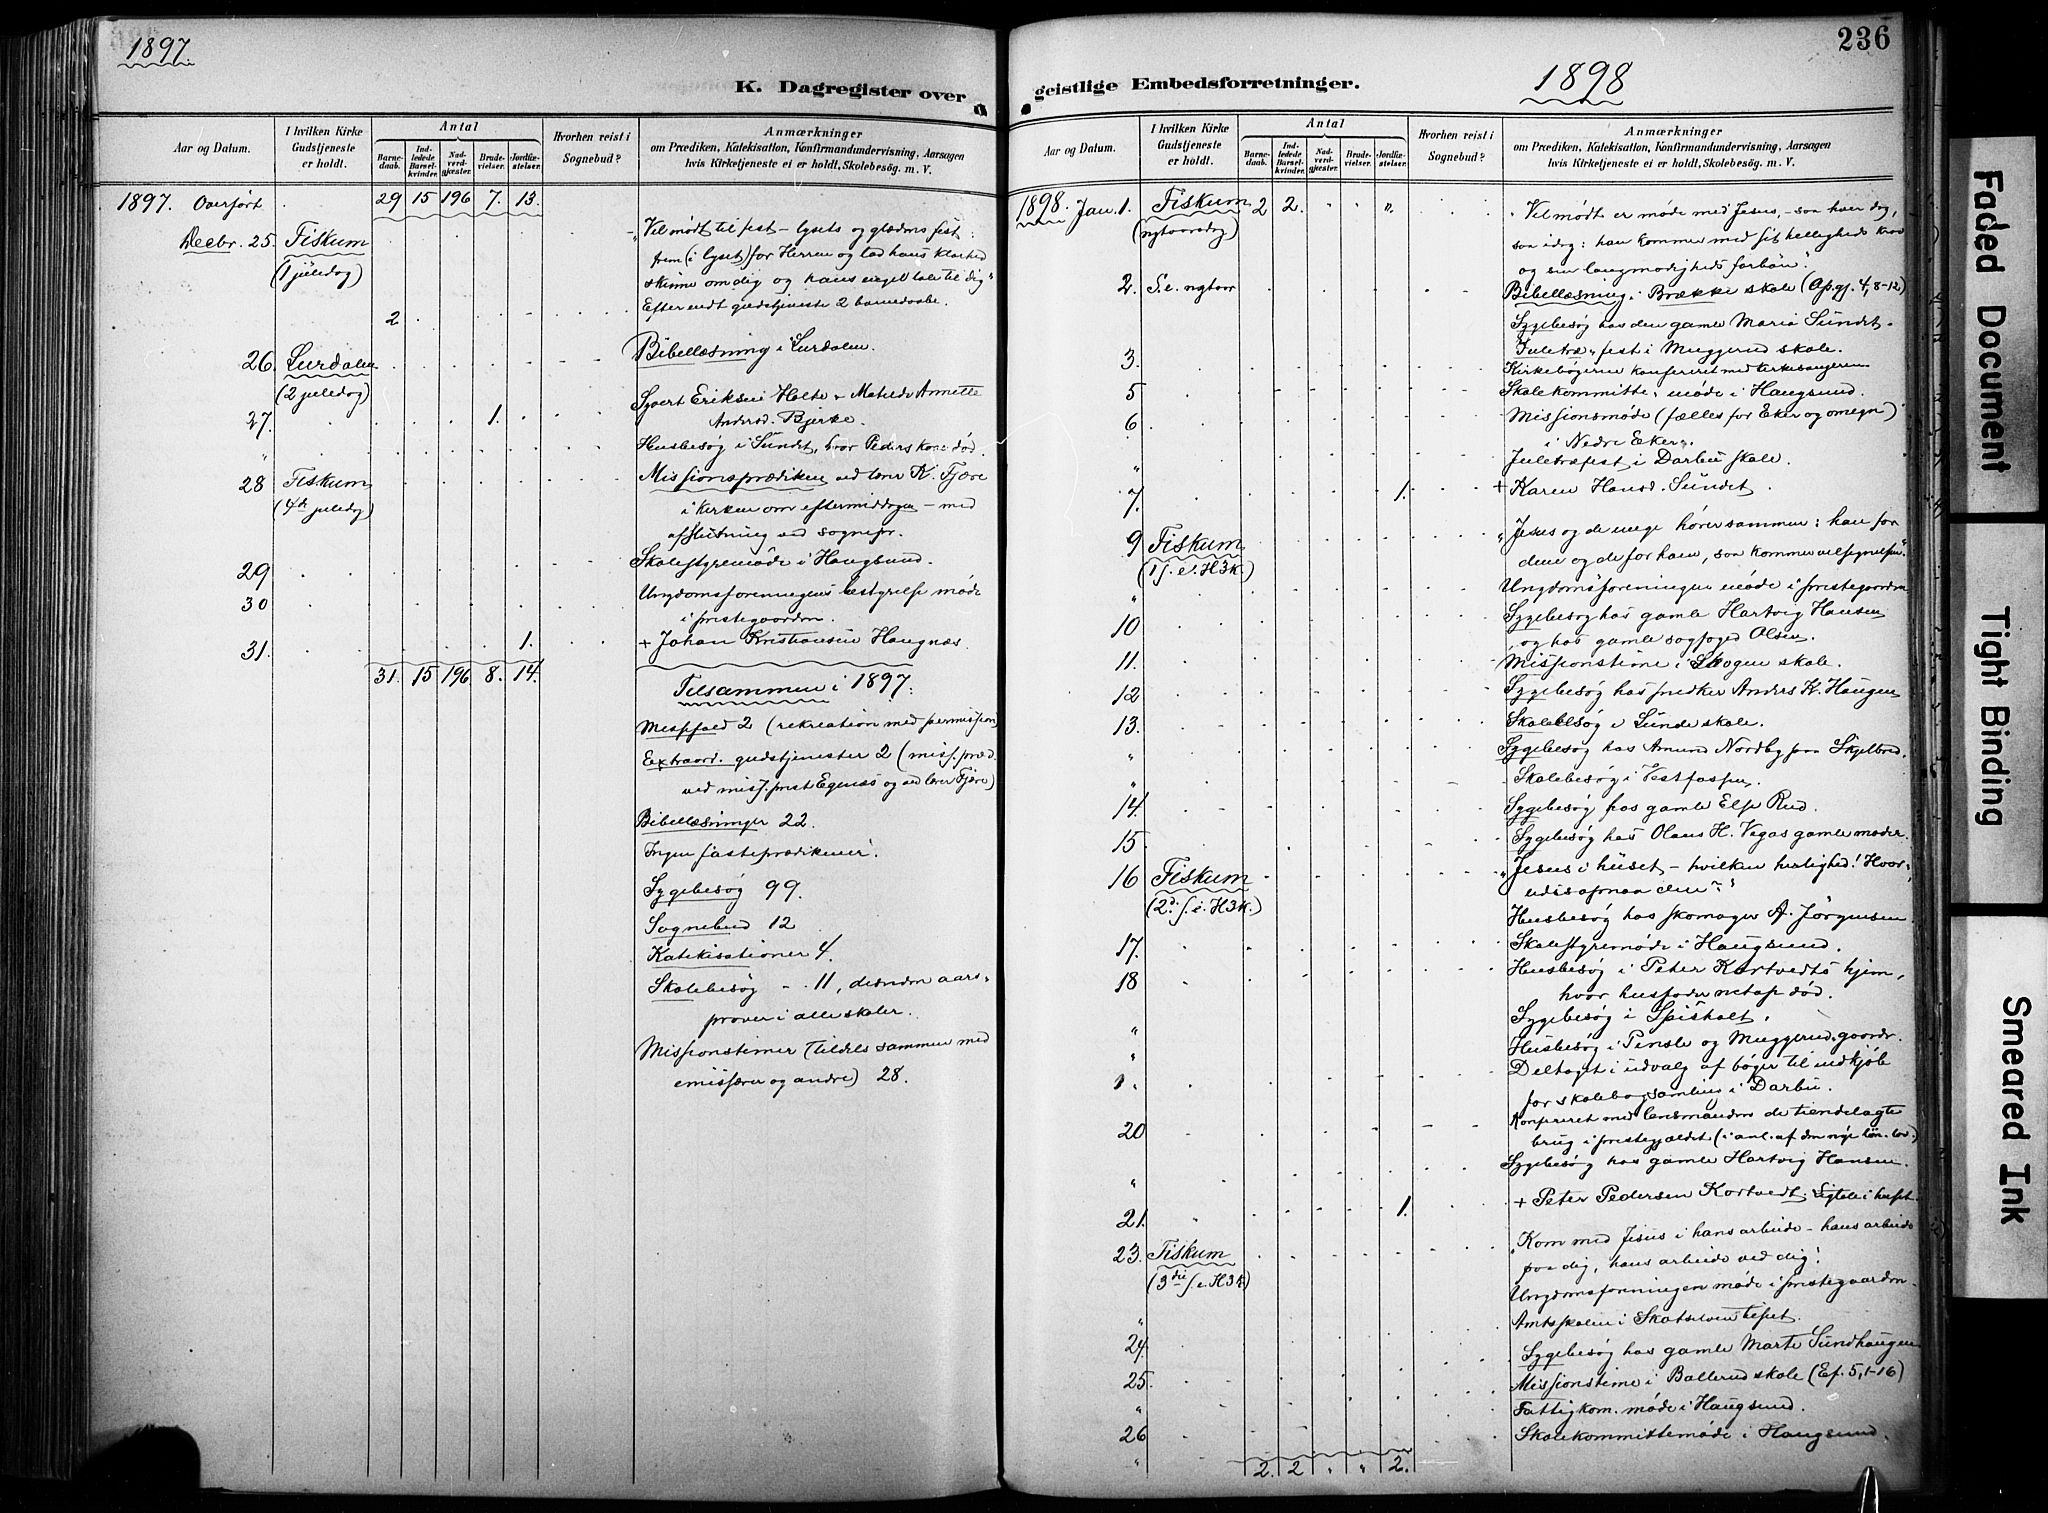 1897.
K. Dagregister over
Aar og Datum.
I hvilken Kirke Gudstjeneste er holdt.
Antal
Barnedaab.
Indledede Barselkvinder.
Nadverdgjester.
Brudevielser.
Jordfæstelser.
Hvorhen reist i Sognebud?
Anmærkninger
om Prædiken, Katekisation, Konfirmandundervisning, Aarsagen
hvis Kirketjeneste ei er holdt, Skolebesög. m. V.
1897. Overført . 29 15 196 7. 13.
Decbr. 25. Fiskum
(1 juledag)
„Velmødt til fest – lysets og glædens fest:
frem (i lyset) for Herren og lad hans klarhed
skinne om dig og hans engel tale til dig“
Efter endt gudstjeneste 2 barnedaabe.
2
26. Lurdalen
(2 juledag)
Bibellæsning i Lurdalen.
27. 1.
Sjvert Eriksen Holte & Matilde Annette
Andersd. Bjerke.
„ Husbesøg i Sundet, hvor Peders kone død.
28 Fiskum
(4de juledag)
Missionsprædiken ved lærer K. Fjære
i kirken om eftermiddagen – med
afslutning ved sognepr.
29 Skolestyremøde i Haugsund.
30 Ungdomsforeningens bestyrelse møde
i prestegaarden.
31. 1. + Johan Kristiansen Haugnæs.
31. 15 196 8. 14.
Tilsammen i 1897:
Messefald 2 (rekreation med permission)
Extraord. gudstjenester 2 (miss. præd.
ved miss. prest Egenæs og ved lærer Fjære)
Bibellæsninger 22.
Ingen fasteprædikener.
Sygebesøg 99.
Sognebud 12
Katekisationer 4.
Skolebesøg – 11, desuden aars-
prøver i alle skoler.
Missionstimer (tildels sammen med
emissærer og andre) 28.
236
geistlige Embedsforretninger.
1898
Aar og Datum.
I hvilken Kirke Gudstjeneste er holdt.
Antal
Barnedaab.
Indledede Barselkvinder.
Nadverdgjester.
Brudevielser.
Jordfæstelser.
Hvorhen reist i Sognebud?
Anmærkninger
om Prædiken, Katekisation, Konfirmandundervisning, Aarsagen
hvis Kirketjeneste ei er holdt, Skolebesög. m. V.
1898. Jan. 1. Fiskum 2 2. „ „ „
(nytaarsdag)
„Velmødt er møde med Jesus, – saa hver dag,
saa idag: han kommer med sit helligheds krav
og sin langmodigheds forbøn“.
2. S. e. nytaar
Bibellæsning i Brække skole (Ap.gj. 4, 8-12)
Sygebesøg hos den gamle Maria Sundet.
3. Juletræ„fest i Muggerud skole.
Kirkebøgerne konfereret med kirkesangeren.
5 Skolekommitte„møde i Haugsund.
6 Missionsmøde (fælles for Eker og omegn)
i Nedre Eker.
„ Juletræfest i Darbu skole.
7. 1. + Karen Hansd. Sundet.
9 Fiskum
(1 s. e. H3K.)
„Jesus og de unge hører sammen: han for
dem og de for ham, saa kommer velsignelsen“.
„ Ungdomsforeningen møde i prestegaarden
10 Sygebesøg hos gamle Hartvig Hansen
og hos gamle sogfoged Olsen.
11. Missionstime i Skogen skole.
12 Sygebesøg hos snedker Anders K. Haugen
13. Skolebesøg i Sunde skole.
„ Sygebesøg hos Amund Nordby paa Skjelbred.
„ Skolebesøg i Vestfossen.
14. Sygebesøg hos gamle Else Rud.
15 Sygebesøg hos Olaus H. Vegas gamle moder.
16 Fiskum
(2d. s. e. H3K.)
„Jesus i huset – hvilken herlighed! Hvor-
Husbesøg hos skomager A. Jörgensen.
17. Skolestyremøde i Haugsund.
18 Husbesøg i Peter Kortvedts hjem,
hvor husfader netop død.
„ Sygebesøg i Spisholt.
„ Husbesøg i Tinsle og Muggerud.gaardr.
Deltaget i udvalg af bøger til indkjøb
for skolebogsamling i Darbu.
20 Konfereret med lensmanden de tiendelagte
brug i prestegjældet (i anl. af den nye løn. lov.)
„ Sygebesøg hos gamle Hartvig Hansen.
21. 1. + Peter Pedersen Kortvedt. Ligtale i huset.
23. Fiskum
(3die s. e. H3K)
„Kom med Jesus i hans arbeide – hans arbeide
paa dig, hans arbeide ved dig!
Ungdomsforningen møde i prestegaarden.
„ Amtsskolen i Skotselven besøgt.
24. Sygebesøg hos gamle Marte Sundhaugen
25 Missionstime i Ballerud skole (Ef. 5, 1-16)
„ Fattigkom. møde i Haugsund.
26 Skolekommittemøde i Haugsund.
„ 2. 2 „ „ 2.
Faded Document
Tight Binding
Smeared Ink